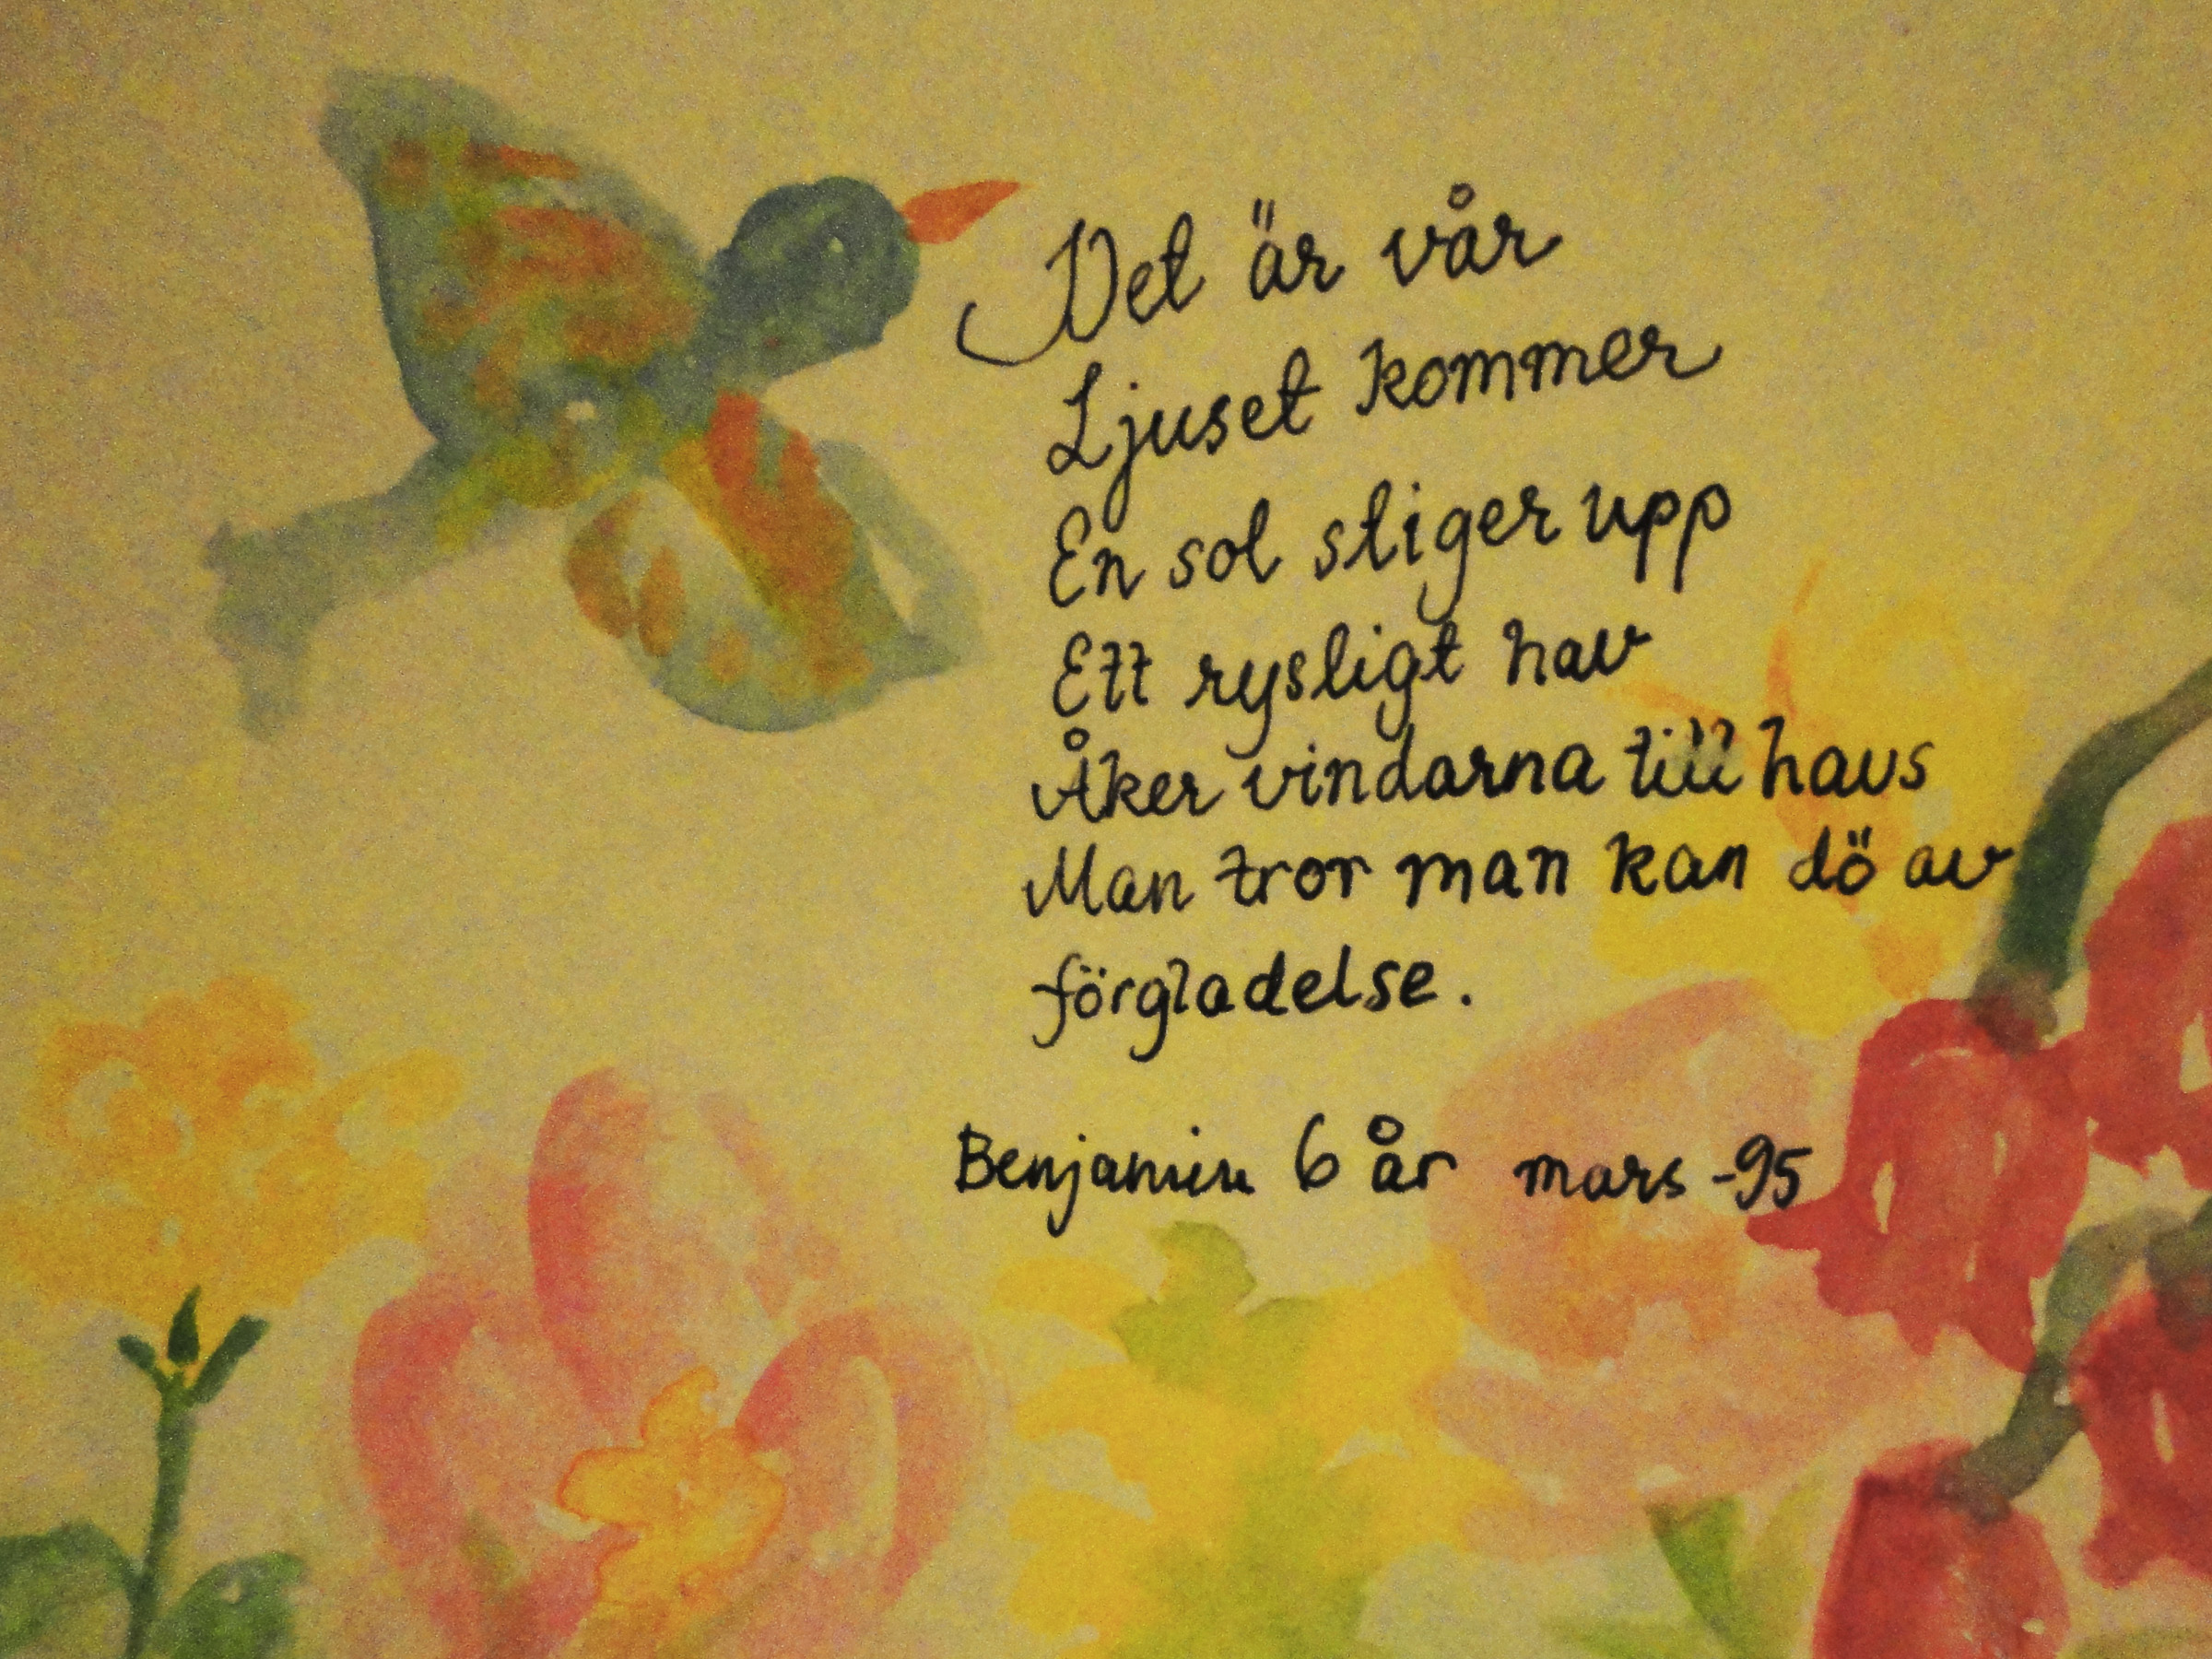 Det är vår
Ljuset kommer
En sol stiger upp
Ett rysligt hav
Åker vindarna till havs
Man tror man kan dö av
förgladelse.
Benjamin 6 år mars -95